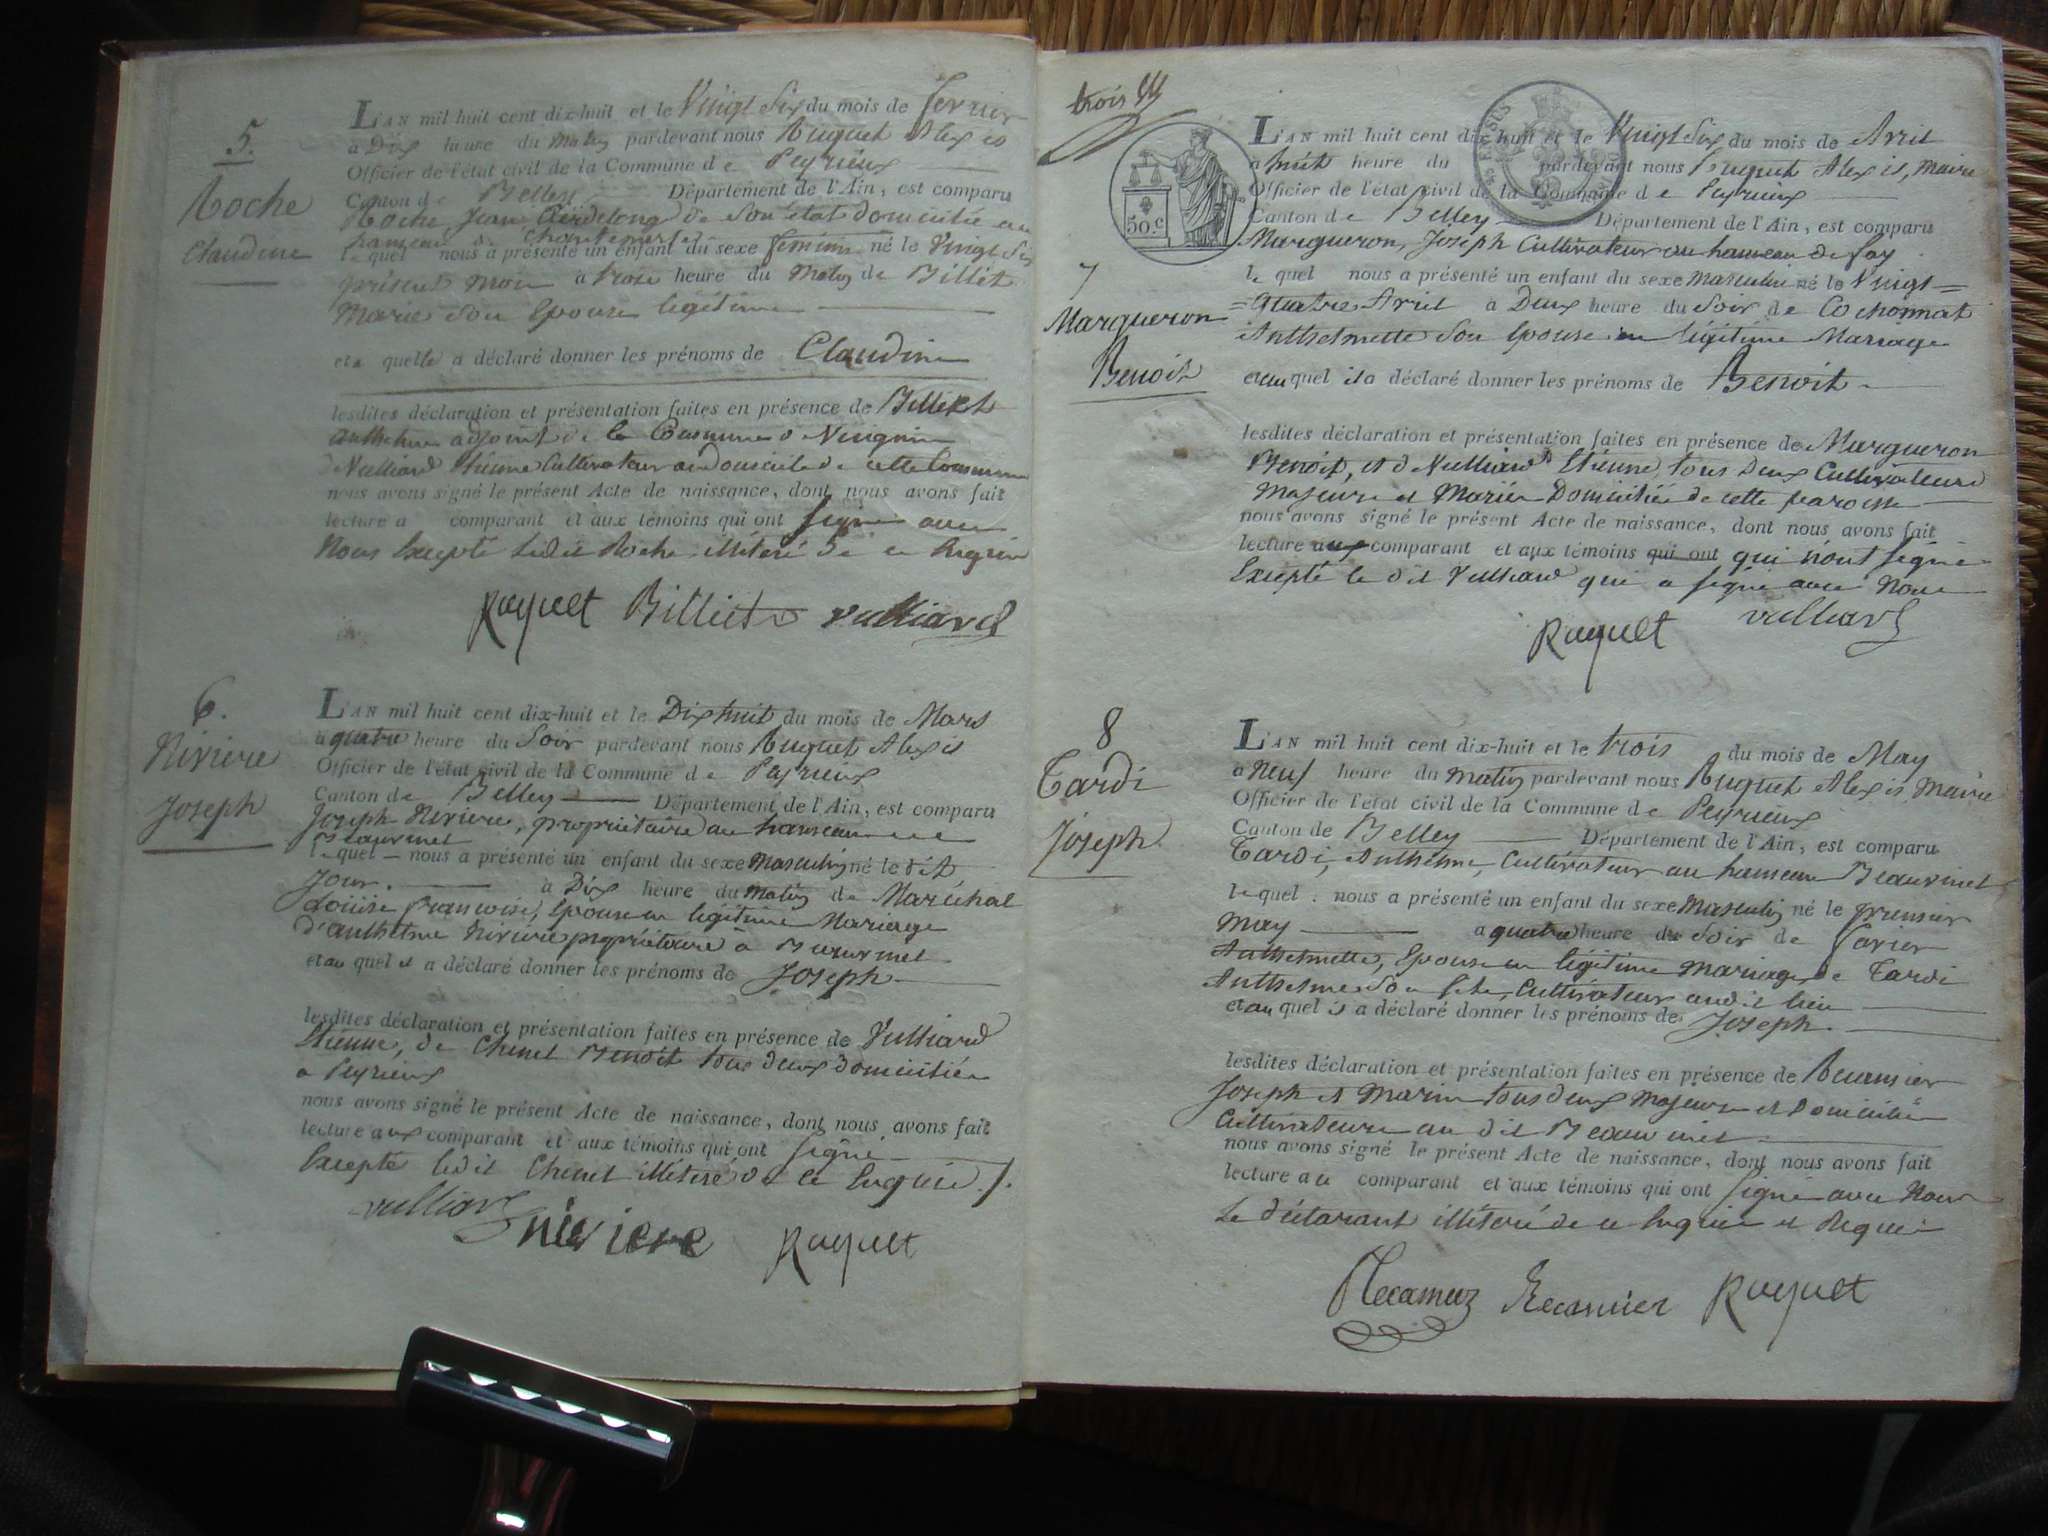 5.
Roche
Claudine
L'AN mil huit cent dix-huit et le Vingt Six du mois de fevrier
a Dix heure du Matin pardevant nous Ruquet Alexis
Officier de l'état civil de la Commune de Peyrieux
Canton de Belley Département de l'Ain, est comparu
Roche, Jean de son état domicilié au
hameau de
lequel nous a présenté un enfant du sexe feminin né le Vingt Six
présent mois a trois heure du Matin de Billiet
Marie son Epouse légitime
et a quelle a déclaré donner les prénoms de Claudine
lesdites déclaration et présentation faites en présence de Billiet
anthelme adjoint de la Commune
Vulliard Etienne Cultivateur domicilié de cette Commune
nous avons signé le présent Acte de naissance, dont nous avons fait
lecture a comparant et aux témoins qui ont signé avec
Nous Excepté Ledit Roche illiteré de ce Requis
Ruquet Billiet vulliard
6.
Riviere
Joseph
L'AN mil huit cent dix-huit et le Dixhuit du mois de Mars
a quatre heure du Soir pardevant nous Ruquet Alexis
Officier de l'état civil de la Commune de Peyrieux
Canton de Belley Département de l'Ain, est comparu
Joseph Riviere, propriétaire au hameau
Beaurmet
lequel nous a présenté un enfant du sexe Masculin né le dit
Jour. a Dix heure du Matin de Maréchal
Louise francoise, Epouse en légitime Mariage
d'anthelme Riviere propriétaire à Beaurmet
et au quel il a déclaré donner les prénoms de Joseph
lesdites déclaration et présentation faites en présence de Vulliard
Etienne, de Chenet Benoit tous deux domiciliés
a Peyrieux
nous avons signé le présent Acte de naissance, dont nous avons fait
lecture aux comparant et aux témoins qui ont signé
Excepté ledit Chenet illiteré de ce Enquis ./.
vulliard riviere Ruquet
trois
50 c.
7
Margueron
Benoit
L'AN mil huit cent dix-huit et le Vingt Six du mois de Avril
a huit heure du pardevant nous Ruquet Alexis, Maire
Officier de l'état civil de la Commune de Peyrieux
Canton de Belley Département de l'Ain, est comparu
Margueron, Joseph Cultivateur au hameau de fay
le quel nous a présenté un enfant du sexe Masculin né le Vingt=
=quatre Avril a Deux heure du Soir de Cochonnat
Anthelmette Son Epouse en légitime Mariage
et au quel il a déclaré donner les prénoms de Benoit
lesdites déclaration et présentation faites en présence de Margueron
Benoit, et de Vulliard Etienne, tous deux Cultivateurs
Majeurs et Mariés Domiciliés de cette paroisse
nous avons signé le présent Acte de naissance, dont nous avons fait
lecture aux comparant et aux témoins qui ont qui n'ont signé
Excepté le dit Vulliard qui a signé avec Nous
vulliard
Ruquet
8
Tardi
Joseph
L'AN mil huit cent dix-huit et le trois du mois de May
a Neuf heure du matin pardevant nous Ruquet Alexis, Maire
Officier de l'état civil de la Commune de Peyrieux
Canton de Belley Département de l'Ain, est comparu
Tardi, Anthelme, Cultivateur au hameau Beaurmet
lequel nous a présenté un enfant du sexe Masculin né le premier
May a quatre heure du Soir de favier
Anthelmette, Epouse en légitime Mariage, de Tardi
Anthelme Cultivateur audit lieu
et au quel il a déclaré donner les prénoms de Joseph.
lesdites déclaration et présentation faites en présence de Recamier
Joseph et Marin tous deux Majeurs et Domiciliés
Cultivateurs au dit Beaurmet
nous avons signé le présent Acte de naissance, dont nous avons fait
lecture au comparant et aux témoins qui ont signé avec Nous
Le déclarant illiteré de ce Enquis et Requis
Recamier Recamier Ruquet